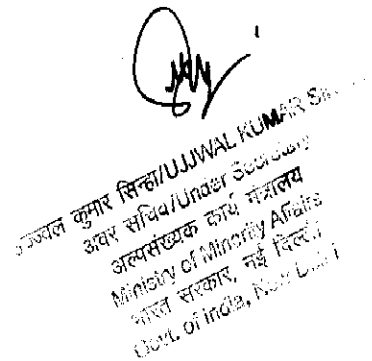 उज्ज्वल कुमार सिन्हा/UJJWAL KUMAR
अवर सचिव/Under Secretary
अल्पसंख्यक कार्य मंत्रालय
Ministry of Minority Affairs
भारत सरकार, नई दिल्ली
Govt. of India, New Delhi